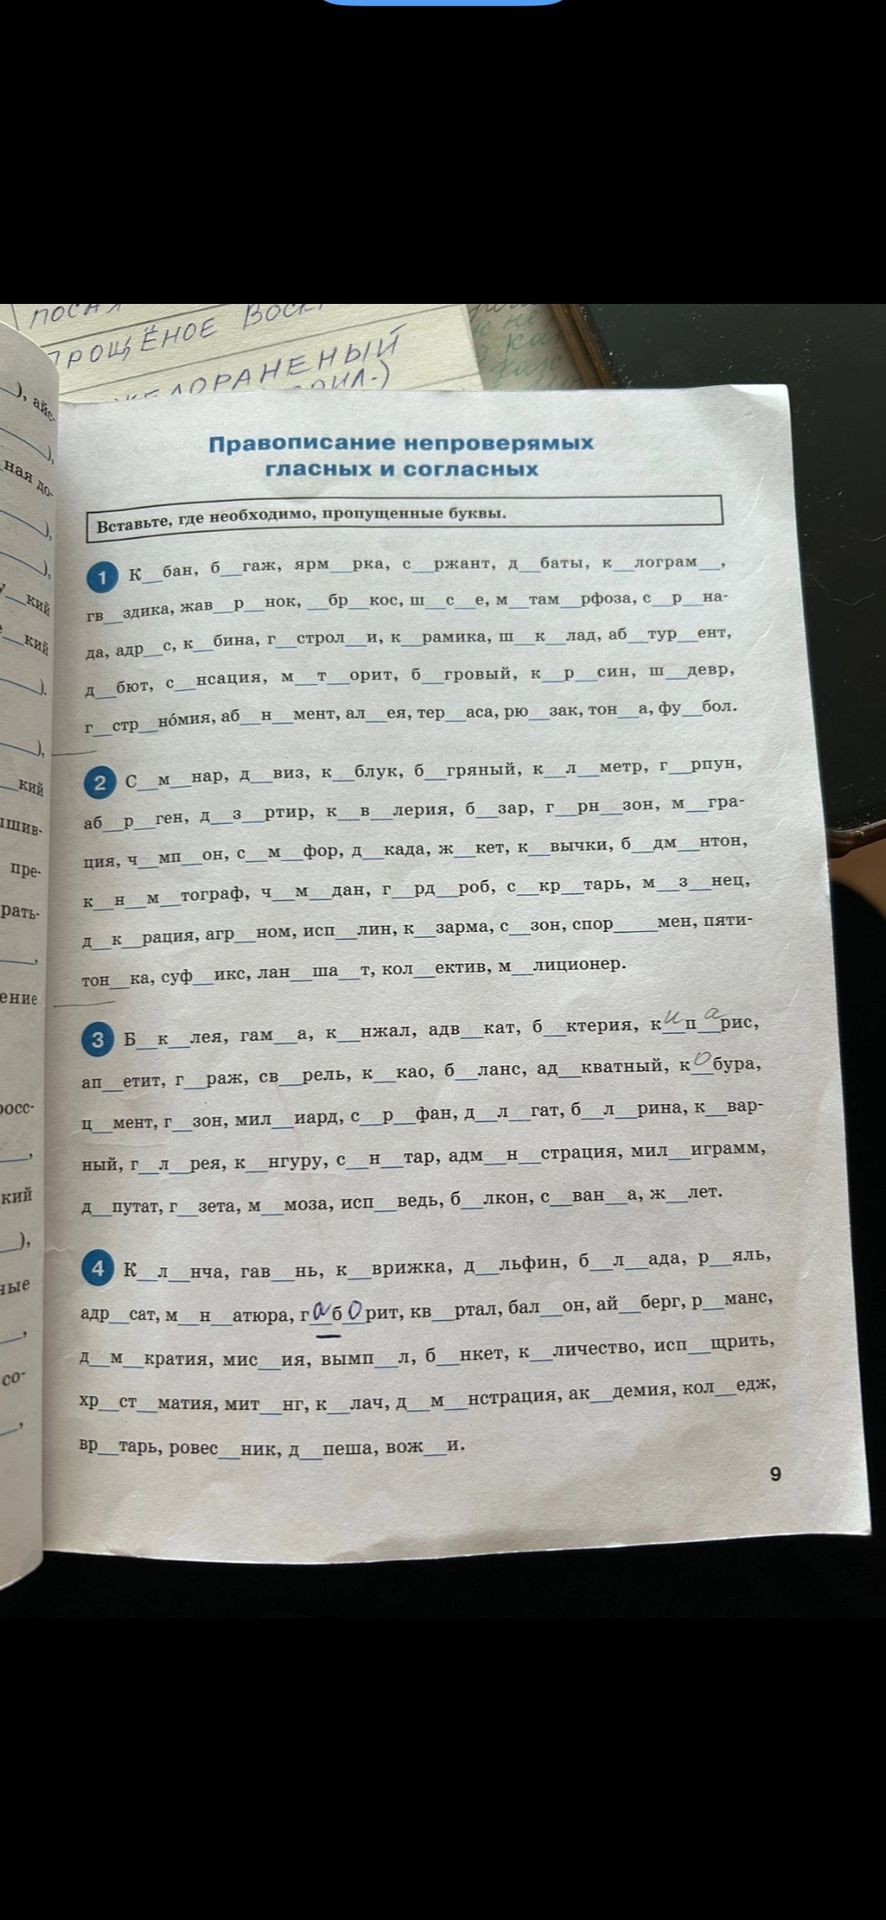 ПРОЩЁНОЕ
), айс-
),
ная до-
),
),
кий
кий
).
),
кий
пре-
рать-
,
ение
росс-
,
кий
),
ные
,
со-
,
Правописание непроверямых
гласных и согласных
Вставьте, где необходимо, пропущенные буквы.
1 К__бан, б__гаж, ярм__рка, с__ржант, д__баты, к__лограм__,
гв__здика, жав__р__нок, __бр__кос, ш__с__е, м__там__рфоза, с__р__на-
да, адр__с, к__бина, г__строл__и, к__рамика, ш__к__лад, аб__тур__ент,
д__бют, с__нсация, м__т__орит, б__гровый, к__р__син, ш__девр,
г__стр__но́мия, аб__н__мент, ал__ея, тер__аса, рю__зак, тон__а, фу__бол.
2 С__м__нар, д__виз, к__блук, б__гряный, к__л__метр, г__рпун,
аб__р__ген, д__з__ртир, к__в__лерия, б__зар, г__рн__зон, м__гра-
ция, ч__мп__он, с__м__фор, д__када, ж__кет, к__вычки, б__дм__нтон,
к__н__м__тограф, ч__м__дан, г__рд__роб, с__кр__тарь, м__з__нец,
д__к__рация, агр__ном, исп__лин, к__зарма, с__зон, спор____мен, пяти-
тон__ка, суф__икс, лан__ша__т, кол__ектив, м__лиционер.
3 Б__к__лея, гам__а, к__нжал, адв__кат, б__ктерия, кипарис,
ап__етит, г__раж, св__рель, к__као, б__ланс, ад__кватный, кобура,
ц__мент, г__зон, мил__иард, с__р__фан, д__л__гат, б__л__рина, к__вар-
ный, г__л__рея, к__нгуру, с__н__тар, адм__н__страция, мил__играмм,
д__путат, г__зета, м__моза, исп__ведь, б__лкон, с__ван__а, ж__лет.
4 К__л__нча, гав__нь, к__врижка, д__льфин, б__л__ада, р__яль,
адр__сат, м__н__атюра, габорит, кв__ртал, бал__он, ай__берг, р__манс,
д__м__кратия, мис__ия, вымп__л, б__нкет, к__личество, исп__щрить,
хр__ст__матия, мит__нг, к__лач, д__м__нстрация, ак__демия, кол__едж,
вр__тарь, ровес__ник, д__пеша, вож__и.
9